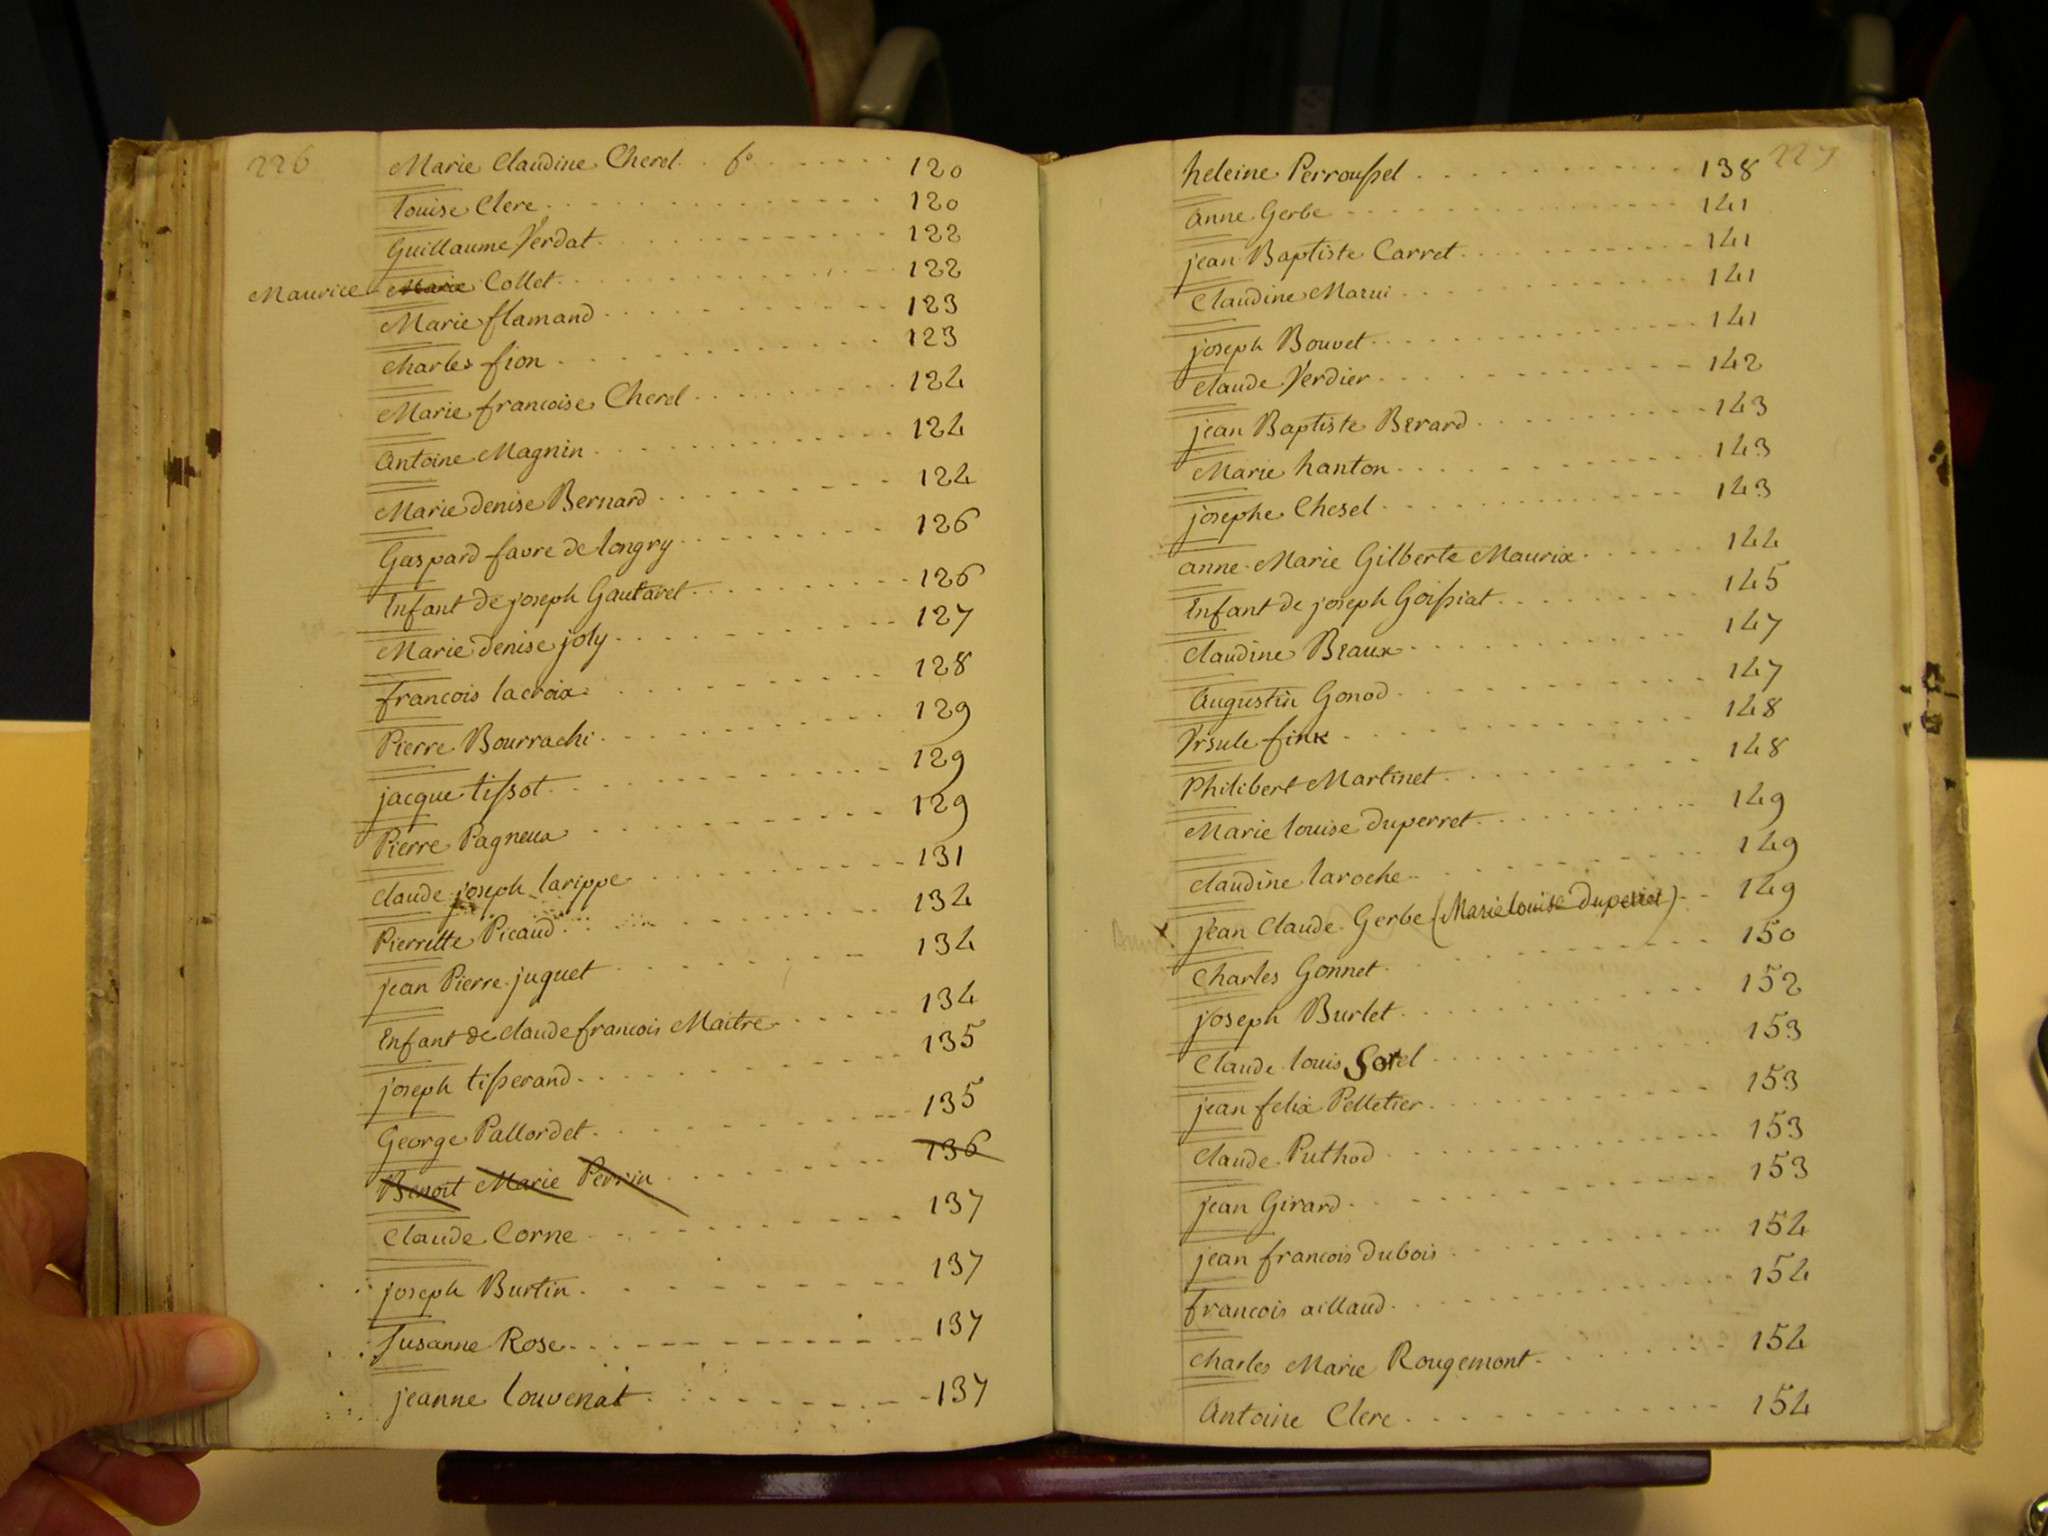 226
Marie Claudine Cherel. fo ....... 120
Louise Clerc ....... 120
Guillaume Verdat ....... 122
Maurice Marie Collet ....... 122
Marie flamand ....... 123
Charles fion ....... 123
Marie francoise Cherel ....... 124
Antoine Magnin ....... 124
Marie denise Bernard ....... 124
Gaspard favre de longry ....... 126
Enfant de joseph Gautaret ....... 126
Marie denise joly ....... 127
francois lacroix ....... 128
Pierre Bourrachi ....... 129
jacque tissot ....... 129
Pierre Pagneux ....... 129
Claude joseph larippe ....... 131
Pierrette Picaud ....... 134
jean Pierre juguet ....... 134
Enfant de claude francois Maitre ....... 134
joseph tisserand ....... 135
George Pallordet ....... 135
Benoit Marie Perrin ....... 136
Claude Corne ....... 137
joseph Burtin ....... 137
Susanne Rose ....... 137
jeanne louvenat ....... 137
227
heleine Perroussel ....... 138
Anne Gerbe ....... 141
jean Baptiste Carret ....... 141
Claudine Marui ....... 141
joseph Bouvet ....... 141
Claude Verdier ....... 142
jean Baptiste Berard ....... 143
Marie hanton ....... 143
josephe Chesel ....... 143
anne Marie Gilberte Maurix ....... 144
Enfant de joseph Goissiat ....... 145
Claudine Beaux ....... 147
Augustin Gonod ....... 147
Vrsule fink ....... 148
Philibert Martinet ....... 148
Marie louise duperret ....... 149
Claudine laroche ....... 149
jean Claude Gerbe (Marie louise Duperret) ....... 149
Charles Gonnet ....... 150
joseph Burlet ....... 152
Claude louis Sorel ....... 153
jean felix Pelletier ....... 153
Claude Puthod ....... 153
jean Girard ....... 153
jean francois dubois ....... 154
francois aillaud ....... 154
Charles Marie Rougemont ....... 154
Antoine Clerc ....... 154